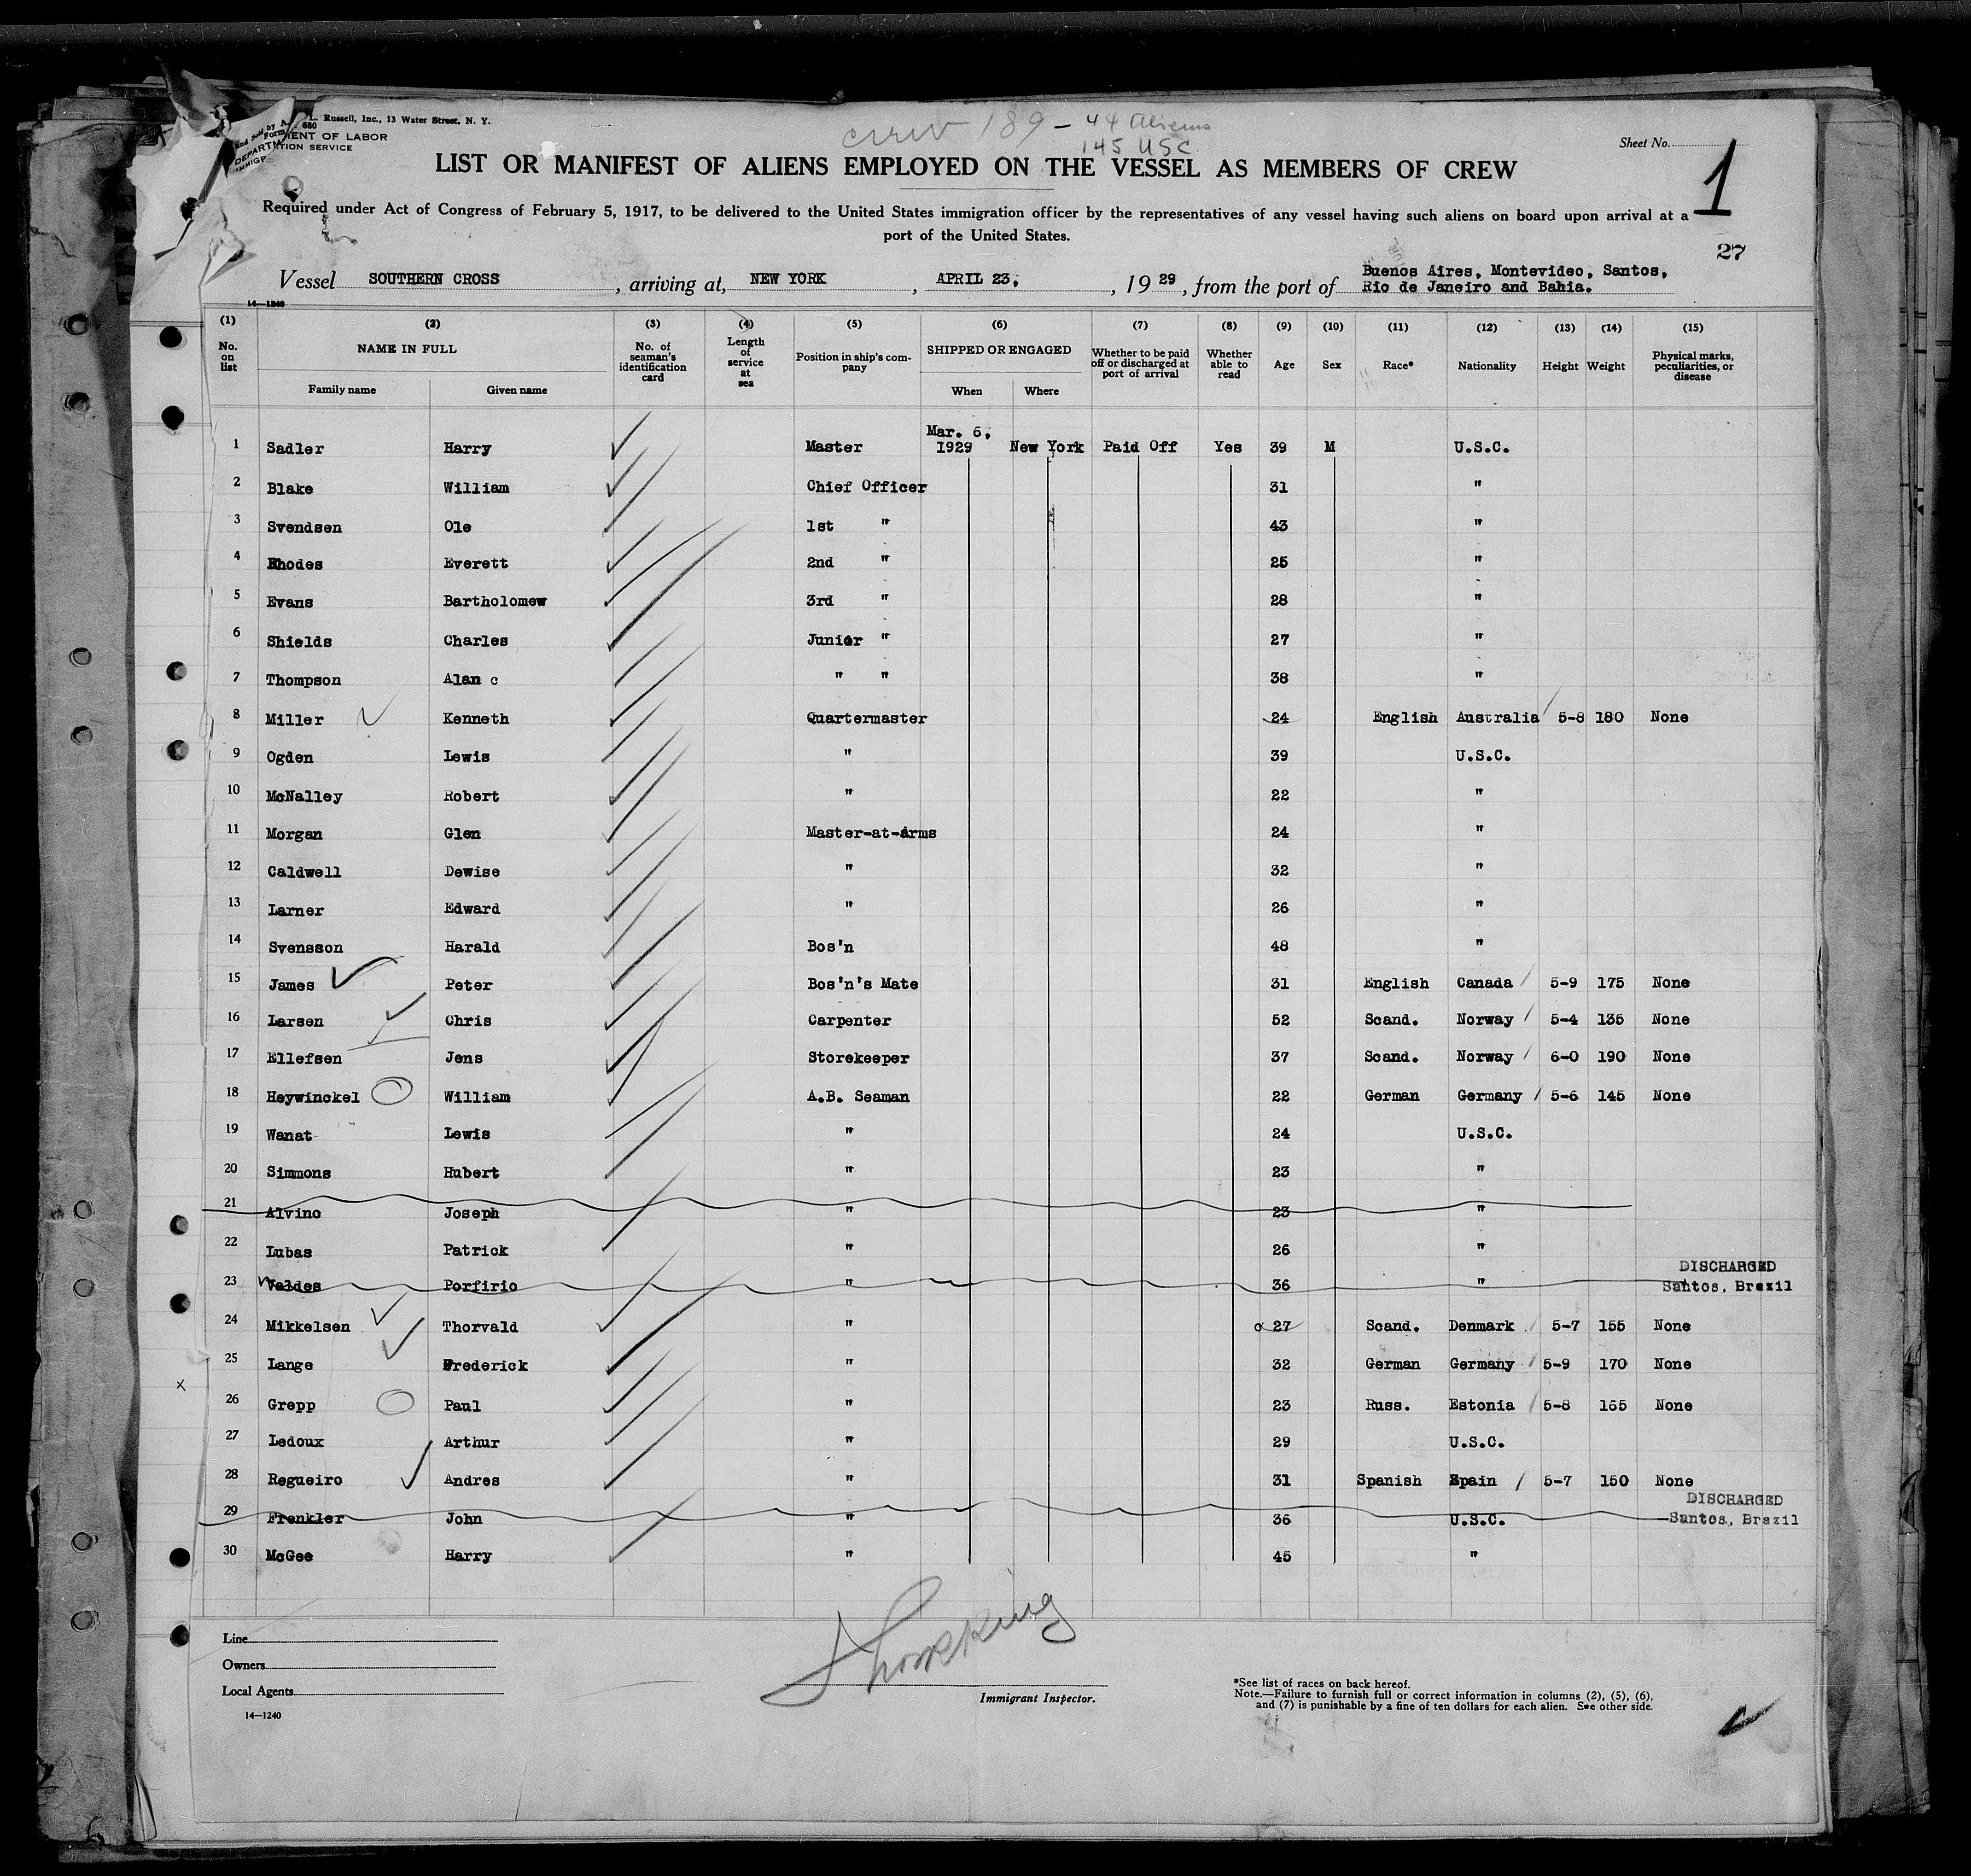 and Sold by A. L. Russell, Inc., 13 Water Street, N. Y.
Form 680
DEPARTMENT OF LABOR
IMMIGRATION SERVICE
crew 189 - 44 Aliens
145 USC
Sheet No. 1
LIST OR MANIFEST OF ALIENS EMPLOYED ON THE VESSEL AS MEMBERS OF CREW
Required under Act of Congress of February 5, 1917, to be delivered to the United States immigration officer by the representatives of any vessel having such aliens on board upon arrival at a
port of the United States.
27
Vessel SOUTHERN CROSS, arriving at, NEW YORK, APRIL 23, 1929, from the port of Buenos Aires, Montevideo, Santos,
Rio de Janeiro and Bahia.
14—1240
(1) (2) (3) (4) (5) (6) (7) (8) (9) (10) (11) (12) (13) (14) (15)
No. on list NAME IN FULL Family name Given name No. of seaman's identification card Length of service at sea Position in ship's company SHIPPED OR ENGAGED When Where Whether to be paid off or discharged at port of arrival Whether able to read Age Sex Race* Nationality Height Weight Physical marks, peculiarities, or disease
1 Sadler Harry Master Mar. 6, 1929 New York Paid Off Yes 39 M U.S.C.
2 Blake William Chief Officer 31 "
3 Svendsen Ole 1st " 43 "
4 Rhodes Everett 2nd " 25 "
5 Evans Bartholomew 3rd " 28 "
6 Shields Charles Junior " 27 "
7 Thompson Alan c " " 38 "
8 Miller Kenneth Quartermaster 24 English Australia 5-8 180 None
9 Ogden Lewis " 39 U.S.C.
10 McNalley Robert " 22 "
11 Morgan Glen Master-at-arms 24 "
12 Caldwell Dewise " 32 "
13 Larner Edward " 26 "
14 Svensson Harald Bos'n 48 "
15 James Peter Bos'n's Mate 31 English Canada 5-9 175 None
16 Larsen Chris Carpenter 52 Scand. Norway 5-4 135 None
17 Ellefsen Jens Storekeeper 37 Scand. Norway 6-0 190 None
18 Heywinckel William A.B. Seaman 22 German Germany 5-6 145 None
19 Wanat Lewis " 24 U.S.C.
20 Simmons Hubert " 23 "
21 Alvino Joseph " 23 "
22 Lubas Patrick " 26 "
23 Valdes Porfirio " 36 " DISCHARGED Santos, Brazil
24 Mikkelsen Thorvald " 27 Scand. Denmark 5-7 155 None
25 Lange Frederick " 32 German Germany 5-9 170 None
x
26 Grepp Paul " 23 Russ. Estonia 5-8 165 None
27 Ledoux Arthur " 29 U.S.C.
28 Regueiro Andres " 31 Spanish Spain 5-7 150 None
29 Frenkler John " 36 U.S.C. DISCHARGED Santos, Brazil
30 McGee Harry " 45 "
Line
Owners
Local Agents
14—1240
Immigrant Inspector.
*See list of races on back hereof.
Note.—Failure to furnish full or correct information in columns (2), (5), (6),
and (7) is punishable by a fine of ten dollars for each alien. See other side.